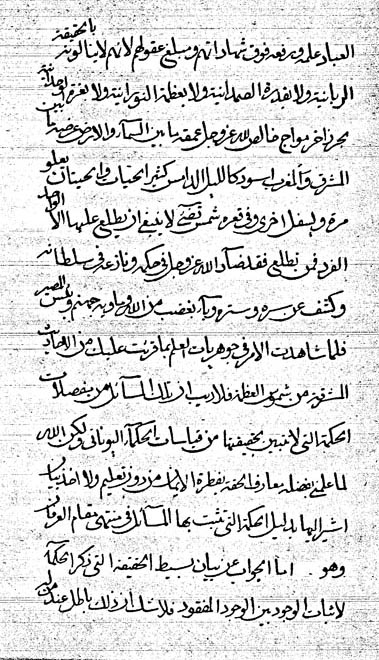 العباد علمه ورفعه فوق شهاداتهم ومبلغ عقولهم لأنهم لا ينالونه بالحقيقة
الربانية ولا بقدرة الصمدانية ولا بعظمة النورانية ولا بعزة الوحدانية
بحر زاخر مواج خالص لله عز وجل عمقه ما بين السماء والارض عرضه ما بين
المشرق والمغرب اسود كالليل الدامس كثير الحيات والحيتان يعلو
مرة ويسفل اخرى وفى قعره شمس تضئ لا ينبغى ان يطلع عليها الا الواحد
الفرد فمن تطلع فقد ضاد الله عز وجل فى حكمه ونازعه فى سلطانه
وكشف عن سره وستره وباء بغضب من الله وماويه جهنم وبئس المصير
فلما شاهدت الامر فى جوهريات العلم بما قرئت عليك من الايات
المشرقة من شموس العظمة فلا ريب ان تلك المسائل من معضلات
الحكمة التى لا تبين بحقيقتها من قياسات الحكمة اليونانى ولكن الله
لما علمنى بفضله معارف الحقه بفطرة الايمان من دون تعليم ولا اخذ بيان
اشير اليها بدليل الحكمة التى تثبت بها المسائل فى منتهى مقام العرفان
وهو اما الجواب عن بيان بسيط الحقيقة التى ذكر الحكماء
لاثبات الوجود بين الموجد والمفقود فلا شك ان ذلك باطل عند